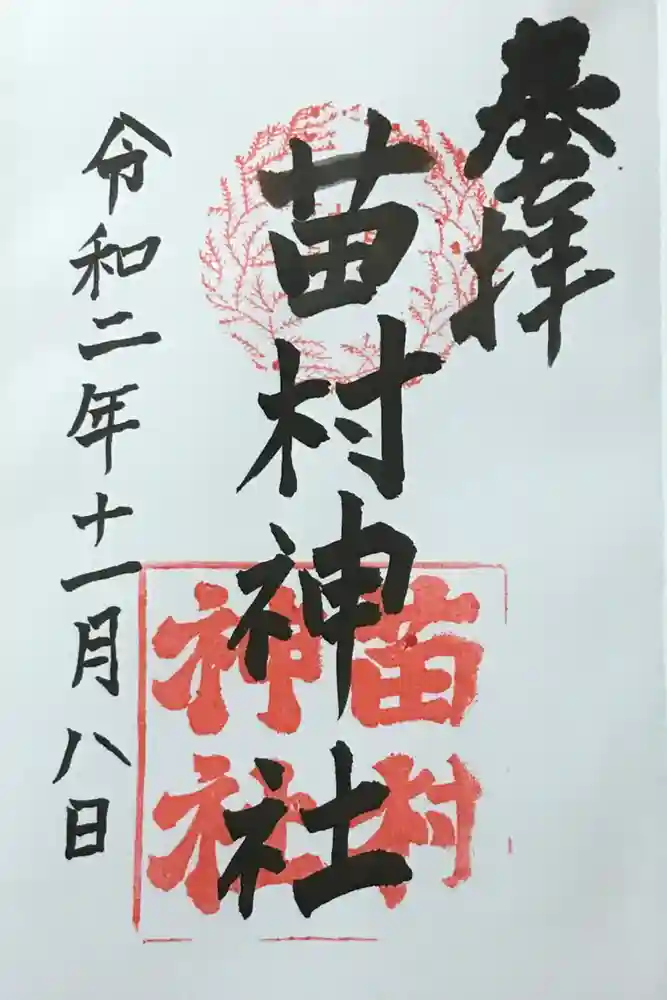 奉拝
苗村神社
令和二年十一月八日
苗村
神社